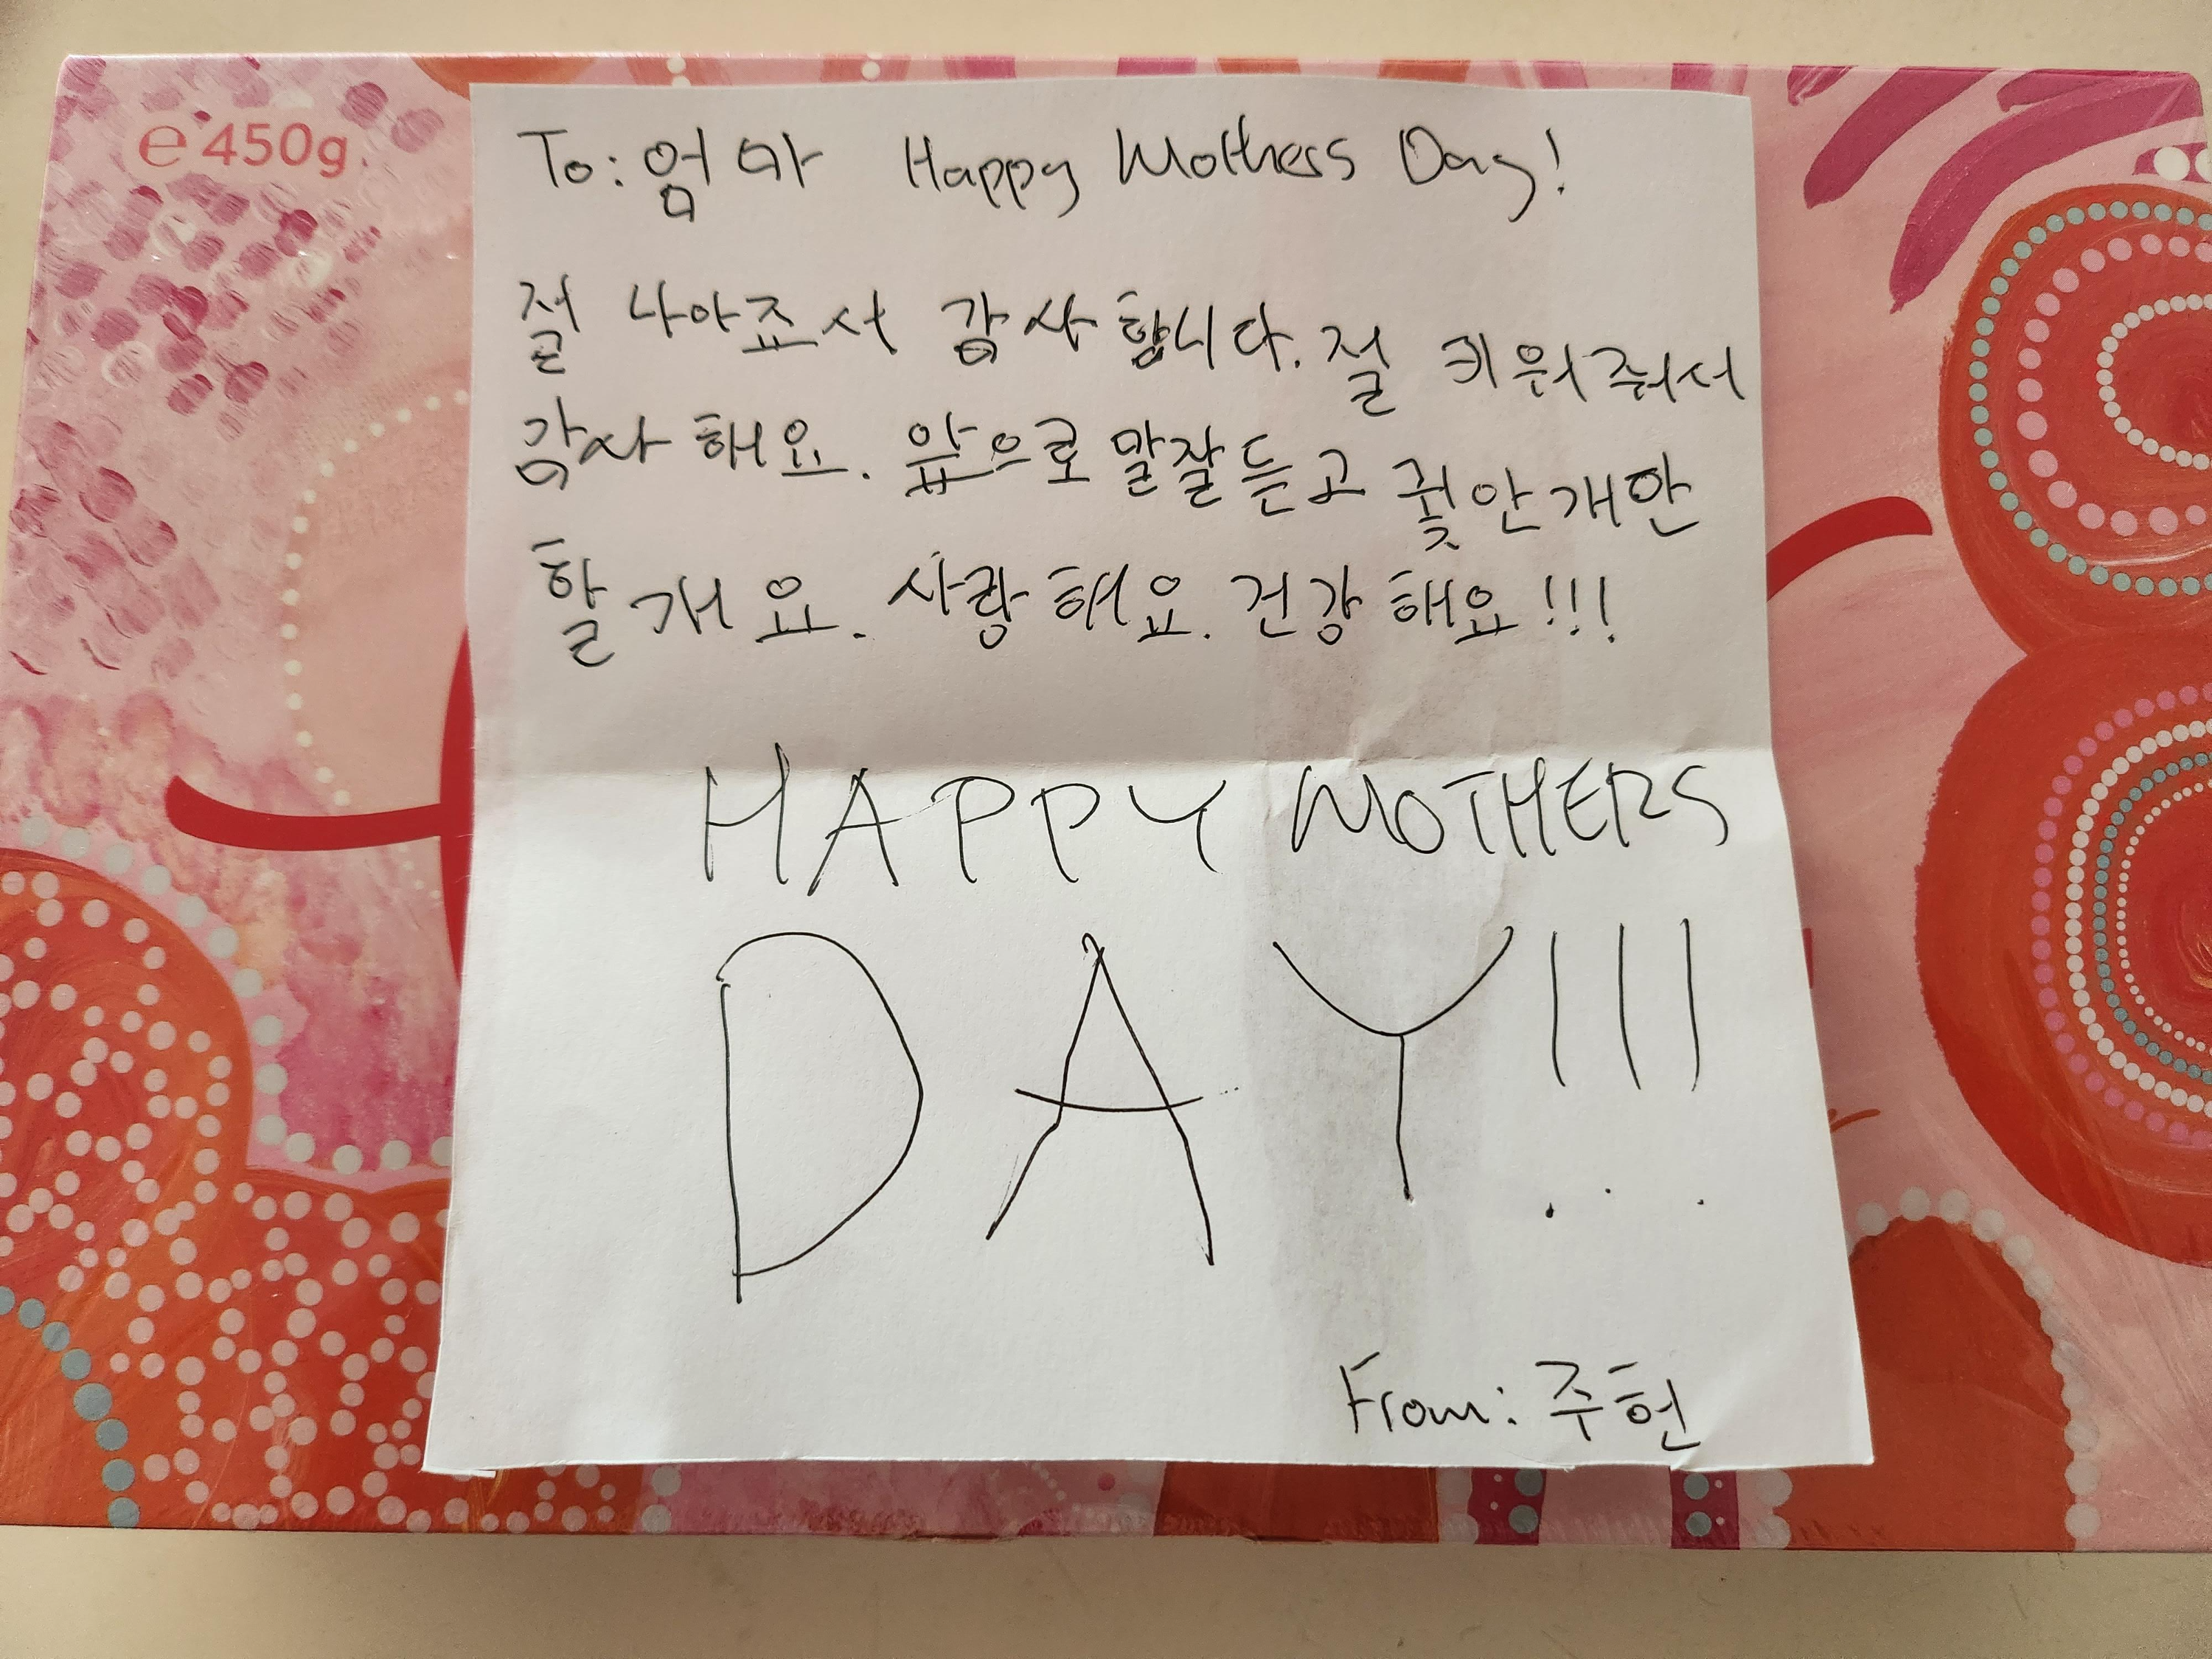 e 450g
To: 엄마 Happy Mothers Day!
절 나아죠서 감사합니다. 절 키워줘서
감사해요. 앞으로 말잘듣고 귖안개안
할개요. 사랑해요. 건강해요!!!
HAPPY MOTHERS
DAY!!!
From: 주헌